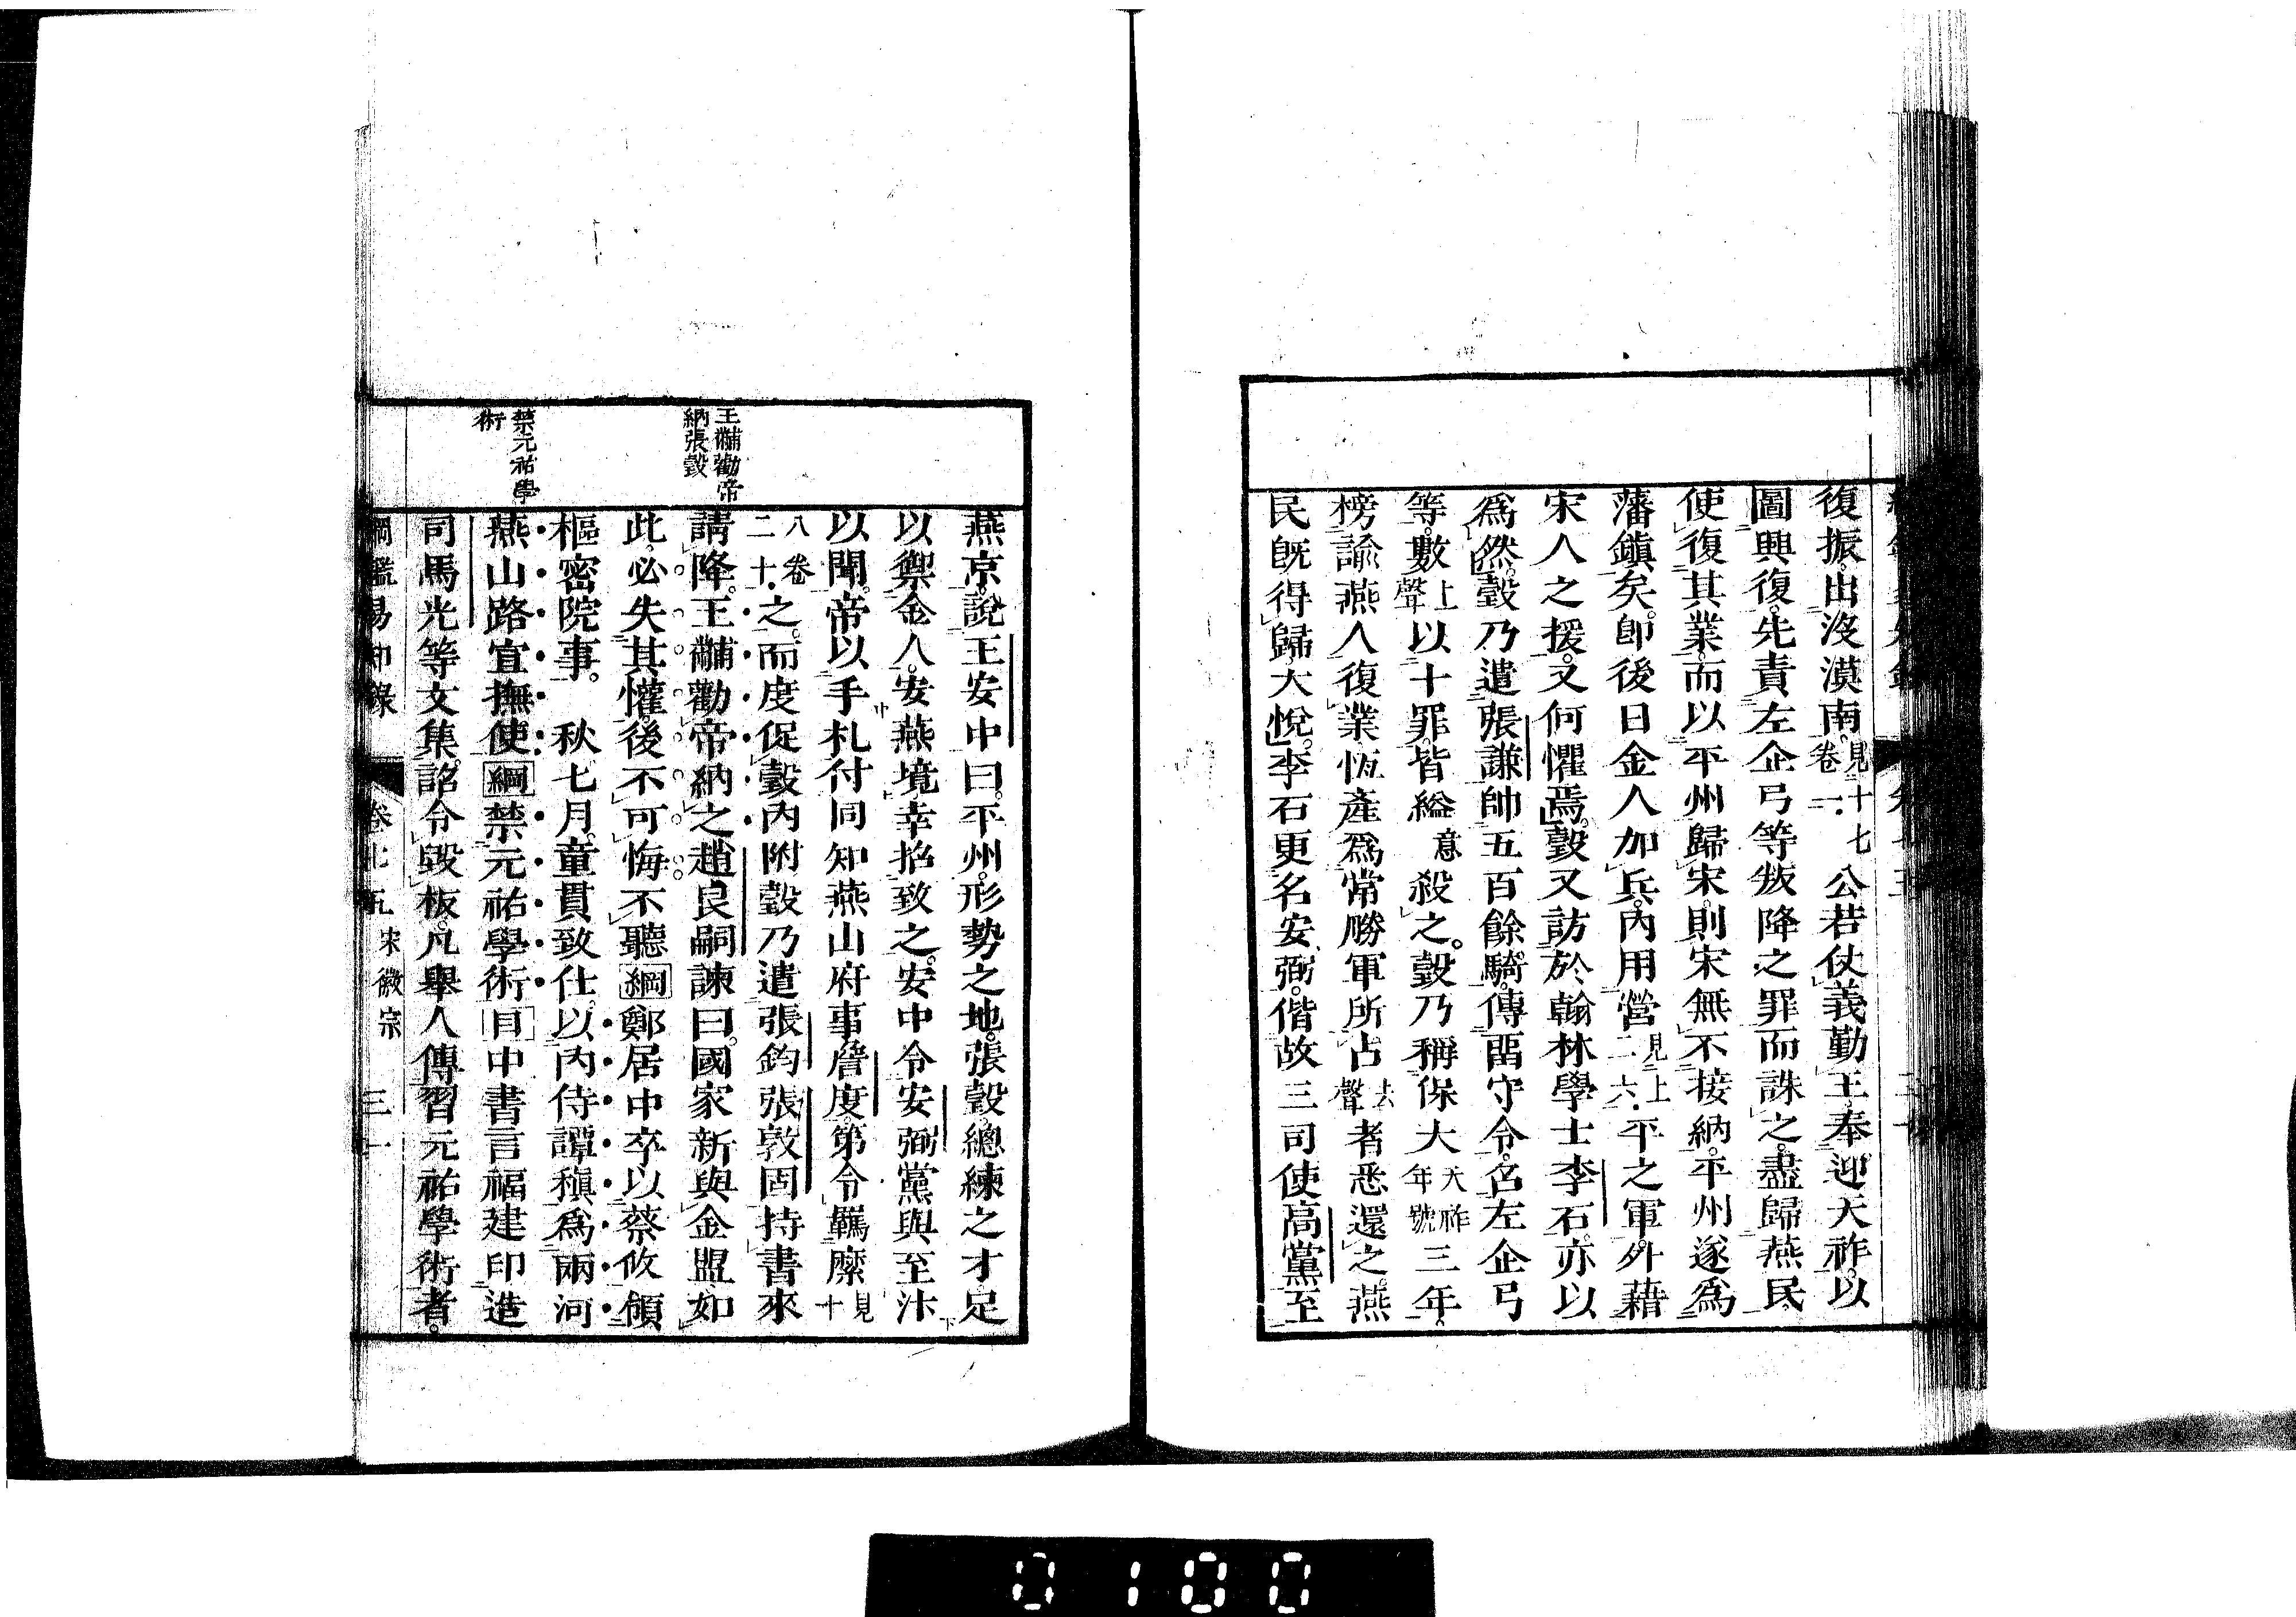 復振。出沒漠南。見十七卷一。公若仗義勤王。奉迎天祚。以
圖興復。先責左企弓等叛降之罪而誅之。盡歸燕民。
使復其業。而以平州歸宋。則宋無不接納。平州遂爲
藩鎭矣。卽後日金人加兵。內用營見上二六。平之軍。外藉
宋人之援。又何懼焉。瑴又訪於翰林學士李石。亦以
爲然。瑴乃遣張謙帥五百餘騎。傳畱守令。召左企弓
等。數上聲以十罪。皆縊意殺之。瑴乃稱保大天祚年號三年。
榜諭燕人復業。恆產爲常勝軍所占去聲者悉還之。燕
民旣得歸。大悅。李石更名安弼。偕故三司使高黨至
燕京。說王安中曰。平州。形勢之地。張瑴。總練之才。足
以禦金人。安燕境。幸招致之。安中令安弼黨與至汴
以聞。帝以手札付同知燕山府事詹度。第令羈縻見十
八卷二十。之。而度促瑴內附。瑴乃遣張鈞張敦固持書來
請降。王黼勸帝納之。趙良嗣諫曰。國家新與金盟。如
此。必失其懽。後不可悔。不聽。綱鄭居中卒。以蔡攸領
樞密院事。 秋七月。童貫致仕。以內侍譚稹爲兩河
燕山路宣撫使。綱禁元祐學術。目中書言福建印造
司馬光等文集。詔令毀板。凡舉人傳習元祐學術者。
王黼勸帝
納張瑴
禁元祐學
術
綱鑑易知錄 卷七五 宋徽宗 三一
0100